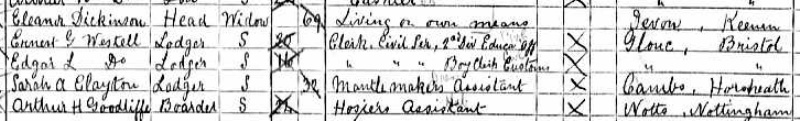 Eleanor Dickinson Head Widow 69 Living on own means Devon,
Ernest G Westell Lodger S 20 Clerk, Civil Ser, 2nd Div Educa Off X Glouc, Bristol
Edgar L Do Lodger S 16 " " " Boy Clerk Customs X " "
Sarah A Clayton Lodger S 32 Mantle makers Assistant X Cambs, Horseheath
Arthur H Goodliffe Boarder S 24 Hosiers Assistant X Notts, Nottingham